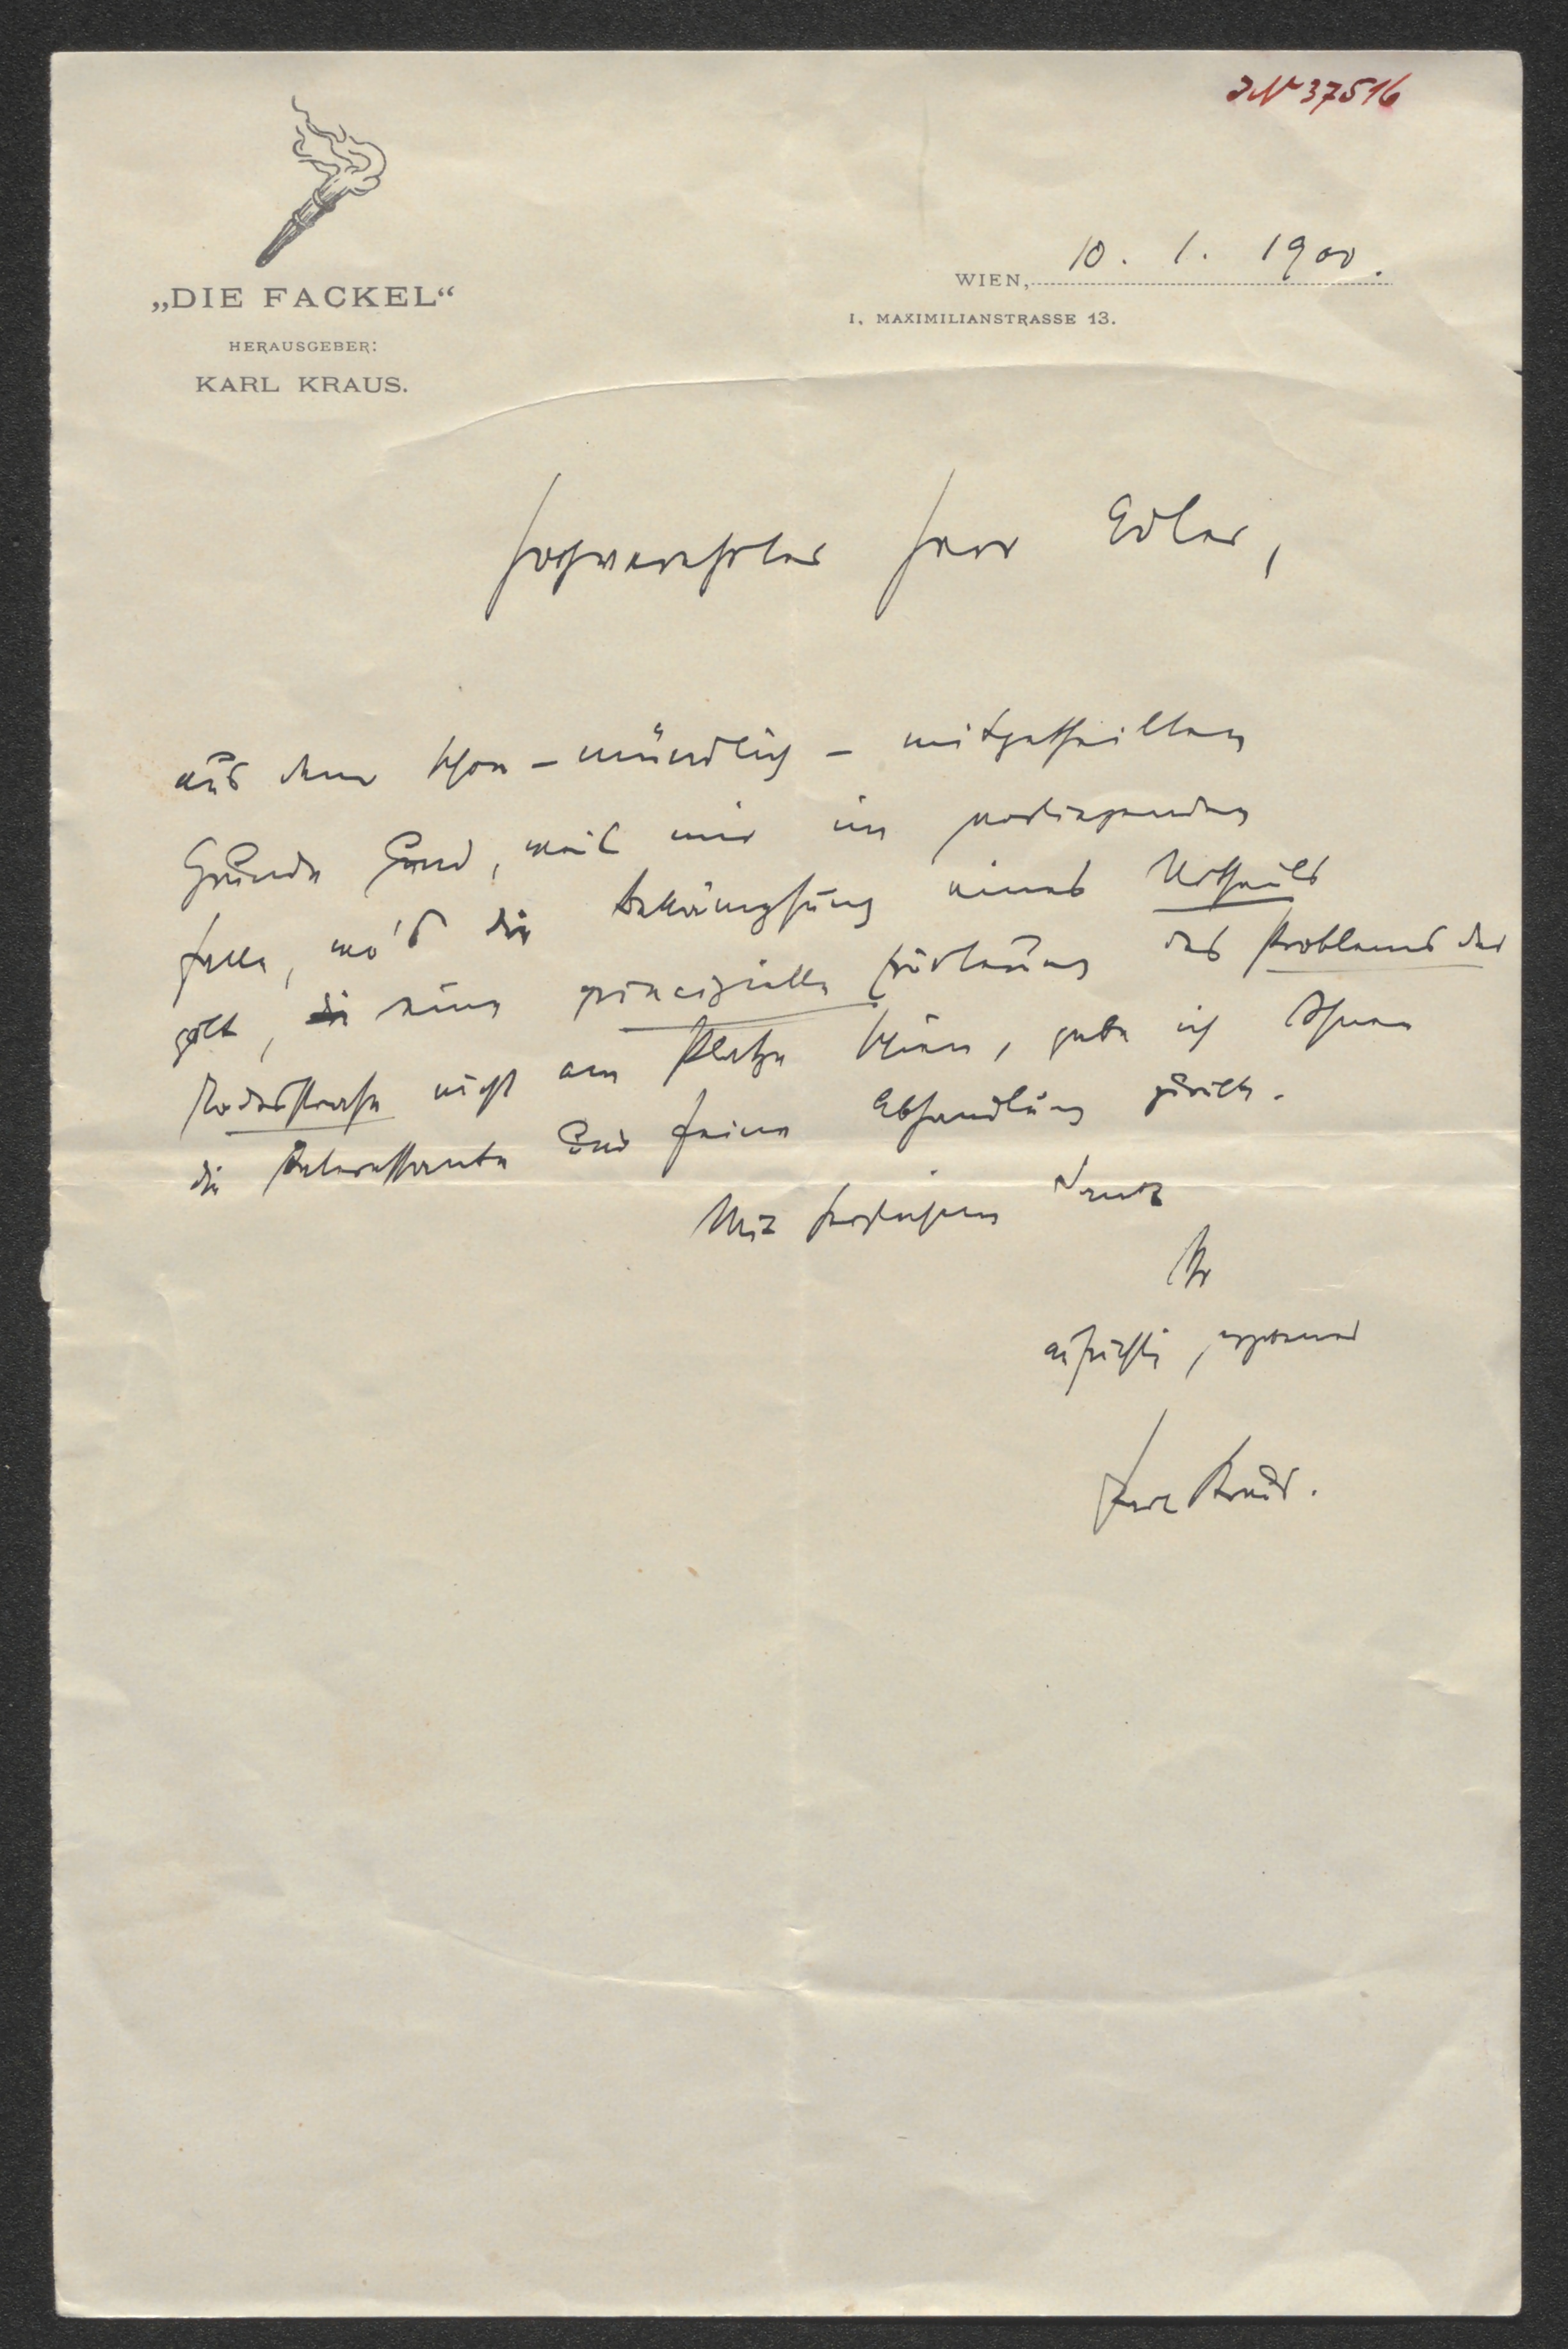 JN 37516
„DIE FACKEL“
HERAUSGEBER:
KARL KRAUS.
WIEN, 10. 1. 1900.
I, MAXIMILIANSTRASSE 13.
Hochverehrter Herr Edler,
aus dem schon – mündlich – mitgetheilten
Grunde und, weil mir im vorliegenden
Falle, wo's die Bekämpfung eines Urtheils
gilt, eine principielle Erörterung des Problems der
Todesstrafe nicht am Platze schien, gebe ich Ihnen
die interessante und feine Abhandlung zurück.
Mit herzlichem Dank
Ihr
aufrichtig ergebener
Karl Kraus.